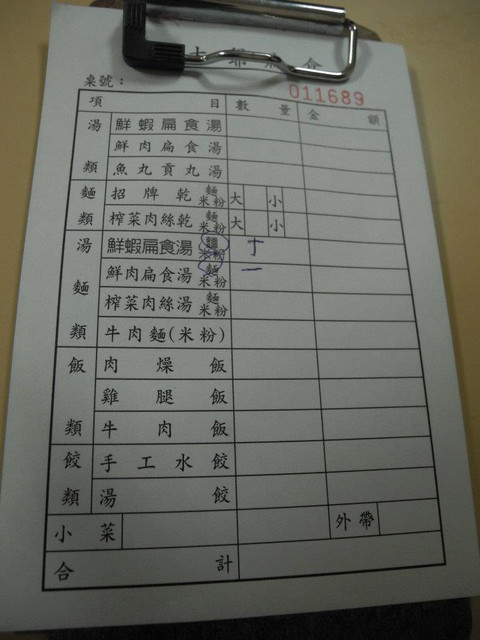 桌號：
011689
項目 數量 金額
湯類
鮮蝦扁食湯
鮮肉扁食湯
魚丸貢丸湯
麵類
招牌乾 麵 米粉 大 小
榨菜肉絲乾 麵 米粉 大 小
湯麵類
鮮蝦扁食湯 麵 米粉 丁
鮮肉扁食湯 麵 米粉 一
榨菜肉絲湯 麵 米粉
牛肉麵(米粉)
飯類
肉燥飯
雞腿飯
牛肉飯
餃類
手工水餃
湯餃
小菜 外帶
合計